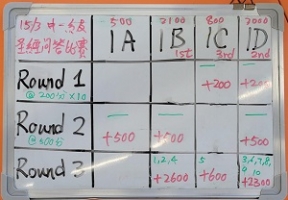 15/3 中一級
聖經問答比賽
500 2100 800 3000
1A 1B 1C 1D
1st 3rd 2nd
Round 1
+200 +200
@ 200分 ×10
Round 2
+500 +500 +500
@ 500分
1,2,4 5 3,6,7,8,
9 10
Round 3
+2600 +600 +2300